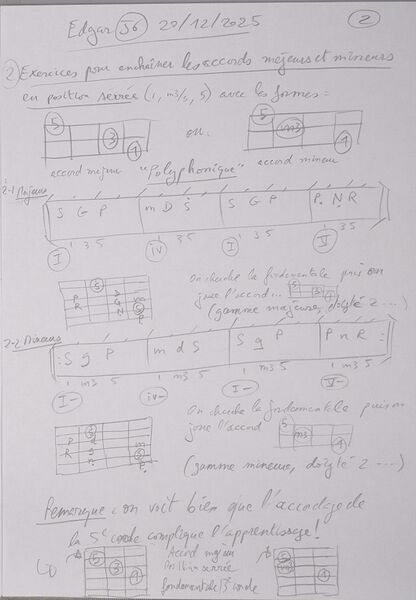 Edgar J6 20/12/2025 2
2) Exercices pour enchaîner les accords majeurs et mineurs
en position serrée (1, m3/3, 5) avec les formes =
5 3 1 ou 5 m3 1
accord majeur "Polyphonique" accord mineur
2-1 Majeurs
S G P m D S S G P P N R
1 3 5 1 3 5 1 3 5 1 3 5
I IV I V
On cherche la fondamentale puis on
joue l'accord... 5 3 1
(gamme majeure, doigté 2 ...)
2-2 Mineurs
S g P m d S S g P P n R
1 m3 5 1 m3 5 1 m3 5 1 m3 5
I- IV- I- V-
On cherche la fondamentale puis on
joue l'accord 5 m3 1
(gamme mineure, doigté 2 ...)
Remarque : on voit bien que l'accordage de
la 5e corde complique l'apprentissage!
5 3 1 Accord majeur 5 m3 1
Position serrée
fondamentale corde